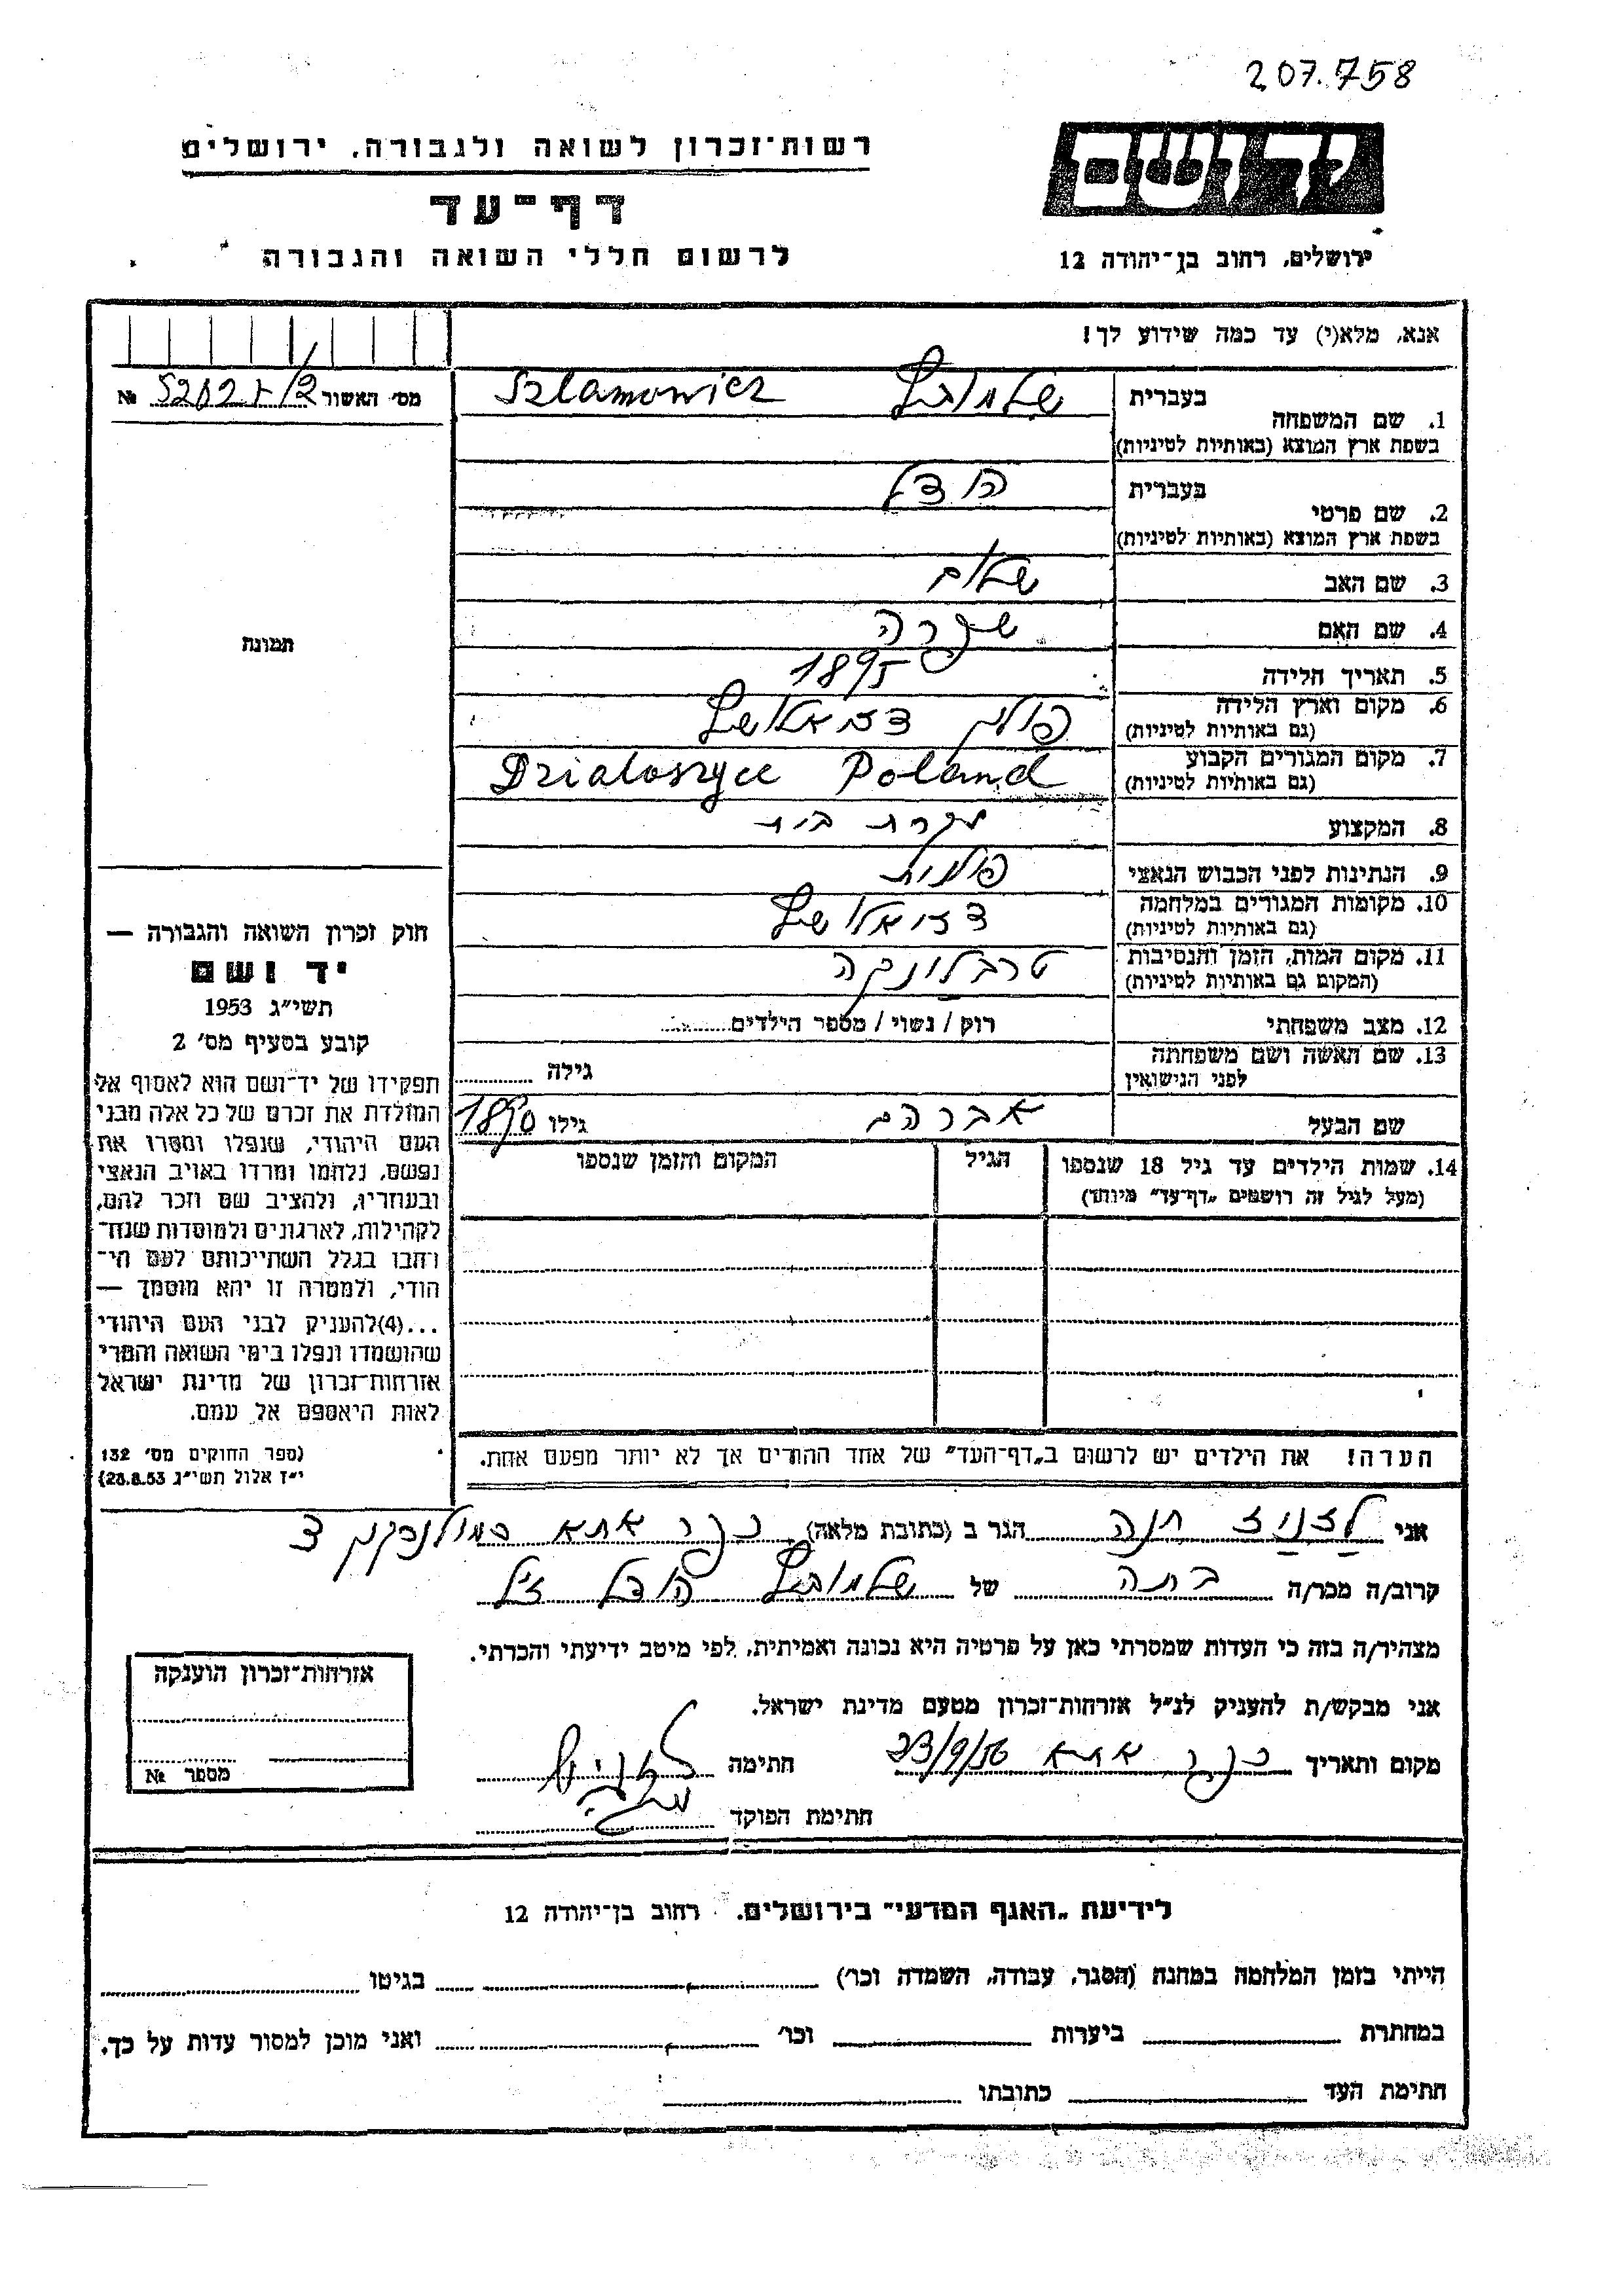 207.758
רשות־זכרון לשואה ולגבורה, ירושלים
דף־עד
לרשום חללי השואה והגבורה
יד ושם
ירושלים, רחוב בן־יהודה 12
אנא, מלא(י) עד כמה שידוע לך!
מס׳ האשור №
תמונה
חוק זכרון השואה והגבורה —
יד ושם
תשי״ג 1953
קובע בסעיף מס׳ 2
תפקידו של יד־ושם הוא לאסוף אל
המולדת את זכרם של כל אלה מבני
העם היהודי, שנפלו ומסרו את
נפשם, נלחמו ומרדו באויב הנאצי
ובעוזריו, ולהציב שם וזכר להם,
לקהילות, לארגונים ולמוסדות שנח־
רבו בגלל השתייכותם לעם הי־
הודי, ולמטרה זו יהא מוסמך —
...(4)להעניק לבני העם היהודי
שהושמדו ונפלו בימי השואה והמרי
אזרחות־זכרון של מדינת ישראל
לאות היאספם אל עמם.
(ספר החוקים מס׳ 132
י״ז אלול תשי״ג 28.8.53)
1. שם המשפחה
בעברית שלמוביץ Szlamowicz
בשפת ארץ המוצא (באותיות לטיניות)
2. שם פרטי
בעברית הודל
בשפת ארץ המוצא (באותיות לטיניות)
3. שם האב שלום
4. שם האם שפרה
5. תאריך הלידה 1895
6. מקום וארץ הלידה פולין דזיאלושיץ
(גם באותיות לטיניות)
7. מקום המגורים הקבוע Dzialoszyce Poland
(גם באותיות לטיניות)
8. המקצוע עקרת בית
9. הנתינות לפני הכבוש הנאצי פולנית
10. מקומות המגורים במלחמה דזיאלושיץ
(גם באותיות לטיניות)
11. מקום המות, הזמן והנסיבות טרבלינקה
(המקום גם באותיות לטיניות)
12. מצב משפחתי רוק / נשוי / מספר הילדים
13. שם האשה ושם משפחתה גילה
לפני הנישואין
שם הבעל אברהם גילו 1890
14. שמות הילדים עד גיל 18 שנספו הגיל המקום והזמן שנספו
(מעל לגיל זה רושמים „דף־עד״ מיוחד)
הערה! את הילדים יש לרשום ב„דף־העד״ של אחד ההורים אך לא יותר מפעם אחת.
אני לזניז חנה הגר ב (כתובת מלאה) כפר אתא
קרוב/ה מכר/ה בתה של שלמוביץ הודל ז״ל
מצהיר/ה בזה כי העדות שמסרתי כאן על פרטיה היא נכונה ואמיתית, לפי מיטב ידיעתי והכרתי.
אני מבקש/ת להעניק לנ״ל אזרחות־זכרון מטעם מדינת ישראל.
מקום ותאריך כפר אתא 23/9/56 חתימה
חתימת הפוקד
אזרחות־זכרון הוענקה
מספר №
לידיעת „האגף המדעי״ בירושלים. רחוב בן־יהודה 12
הייתי בזמן המלחמה במחנה (הסגר, עבודה, השמדה וכו׳) בגיטו
במחתרת ביערות וכו׳ ואני מוכן למסור עדות על כך.
חתימת העד כתובתו